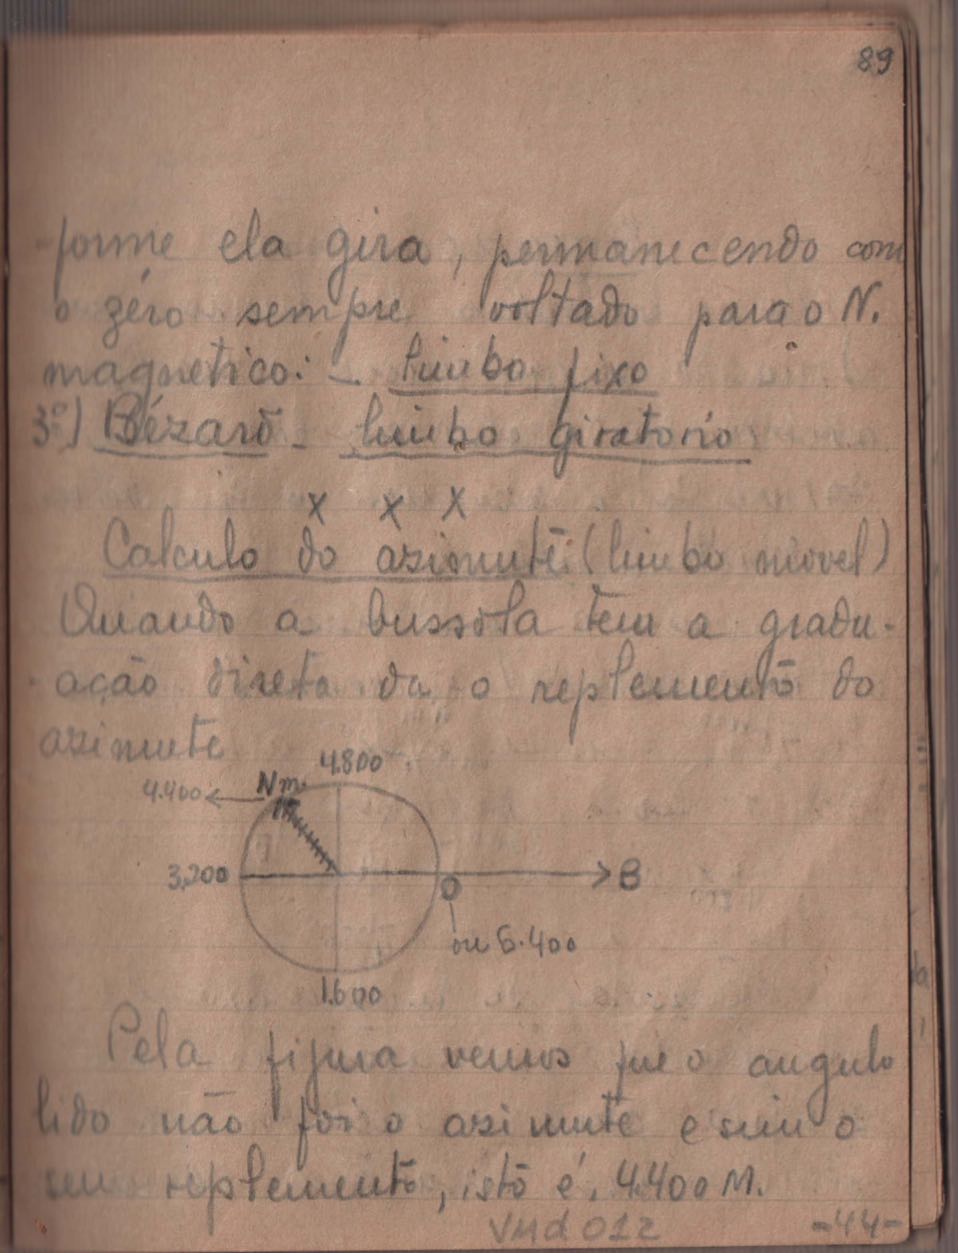 89
-forme ela gira, permanecendo com
o zéro sempre voltado para o N.
magnetico: - limbo fixo
3º) Bézarô - limbo giratorio
x x x
Calculo do azimute (limbo móvel)
Quando a bussola tem a gradu-
ação direta da o replemento do
azimute
4.800
Nm.
4.400
3,200
O
B
ou 6.400
1.600
Pela figura vemos que o angulo
lido não foi o azimute e sim o
seu replemento, isto é, 4.400 M.
VHd012
-44-